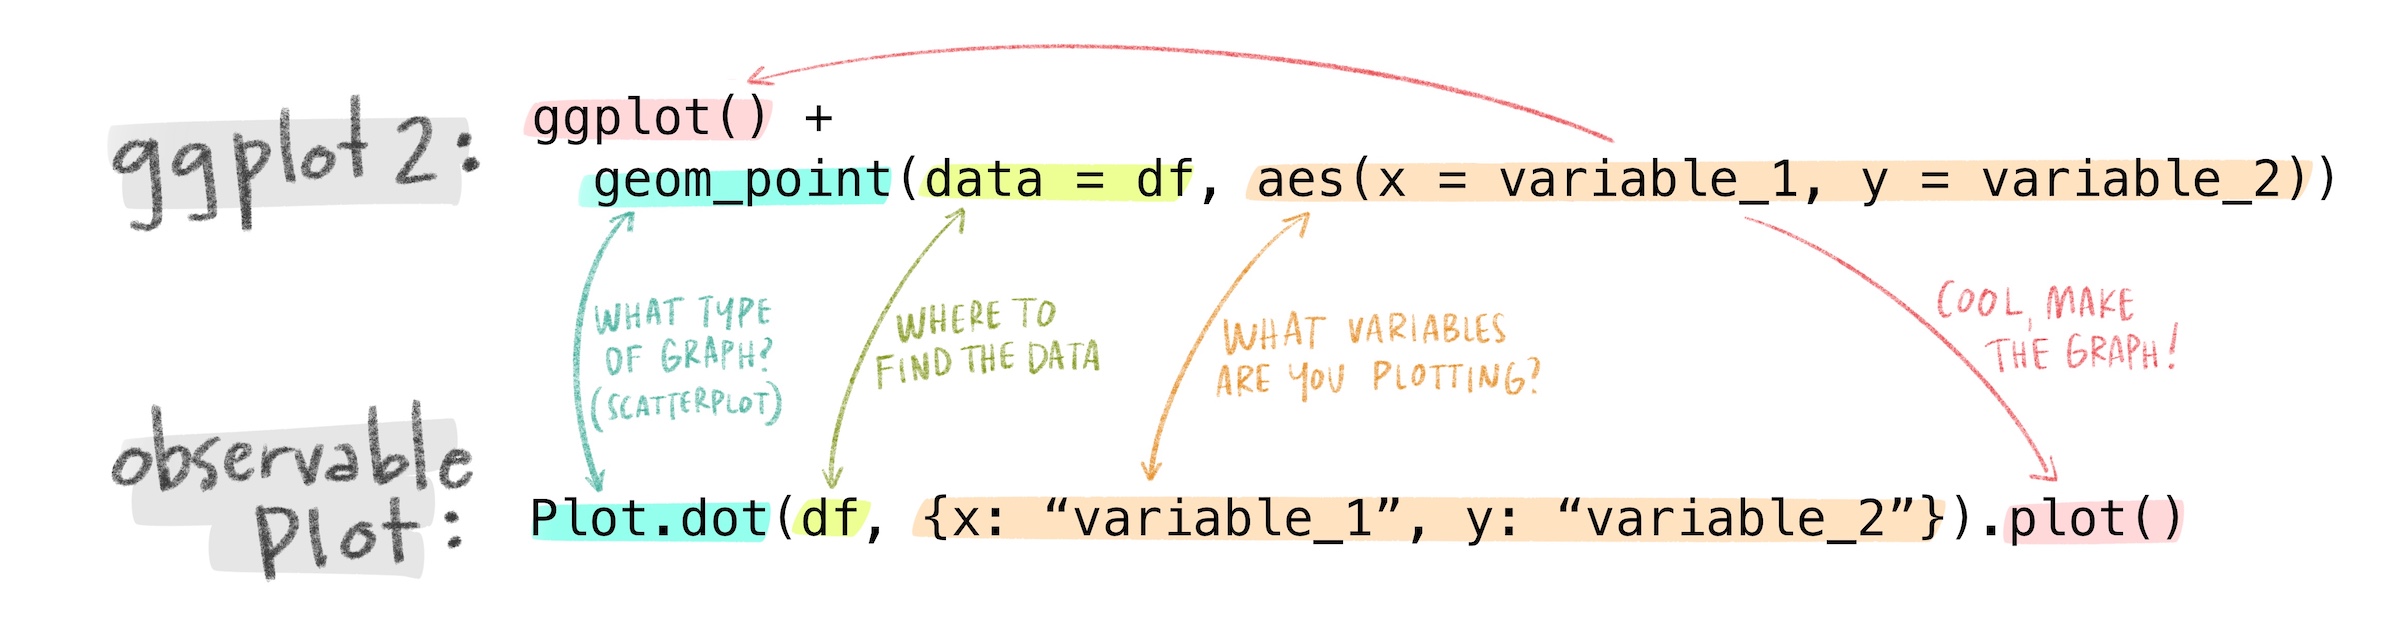 ggplot2:
ggplot() +
geom_point(data = df, aes(x = variable_1, y = variable_2))
WHAT TYPE
OF GRAPH?
(SCATTERPLOT)
WHERE TO
FIND THE DATA
WHAT VARIABLES
ARE YOU PLOTTING?
COOL, MAKE
THE GRAPH!
observable
plot:
Plot.dot(df, {x: “variable_1”, y: “variable_2”}).plot()